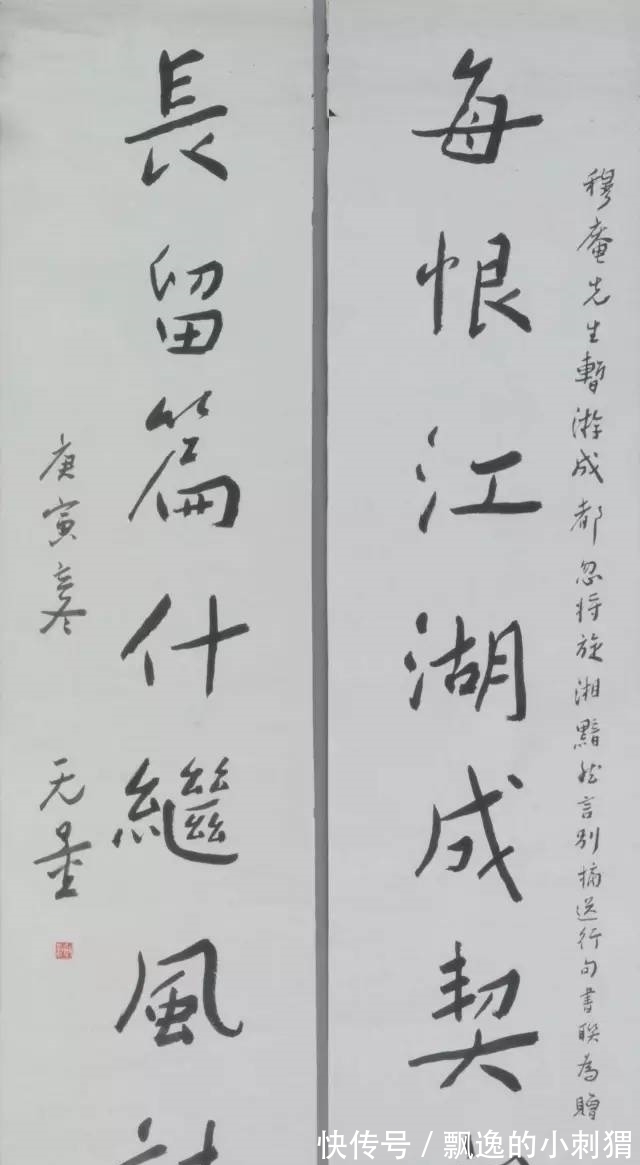 穆庵先生暫游成都忽将旋湘黯然言别摘送行句書联為贈
每恨江湖成契
長留篇什繼風
庚寅寒
无量
快传号/飘逸的小刺猬